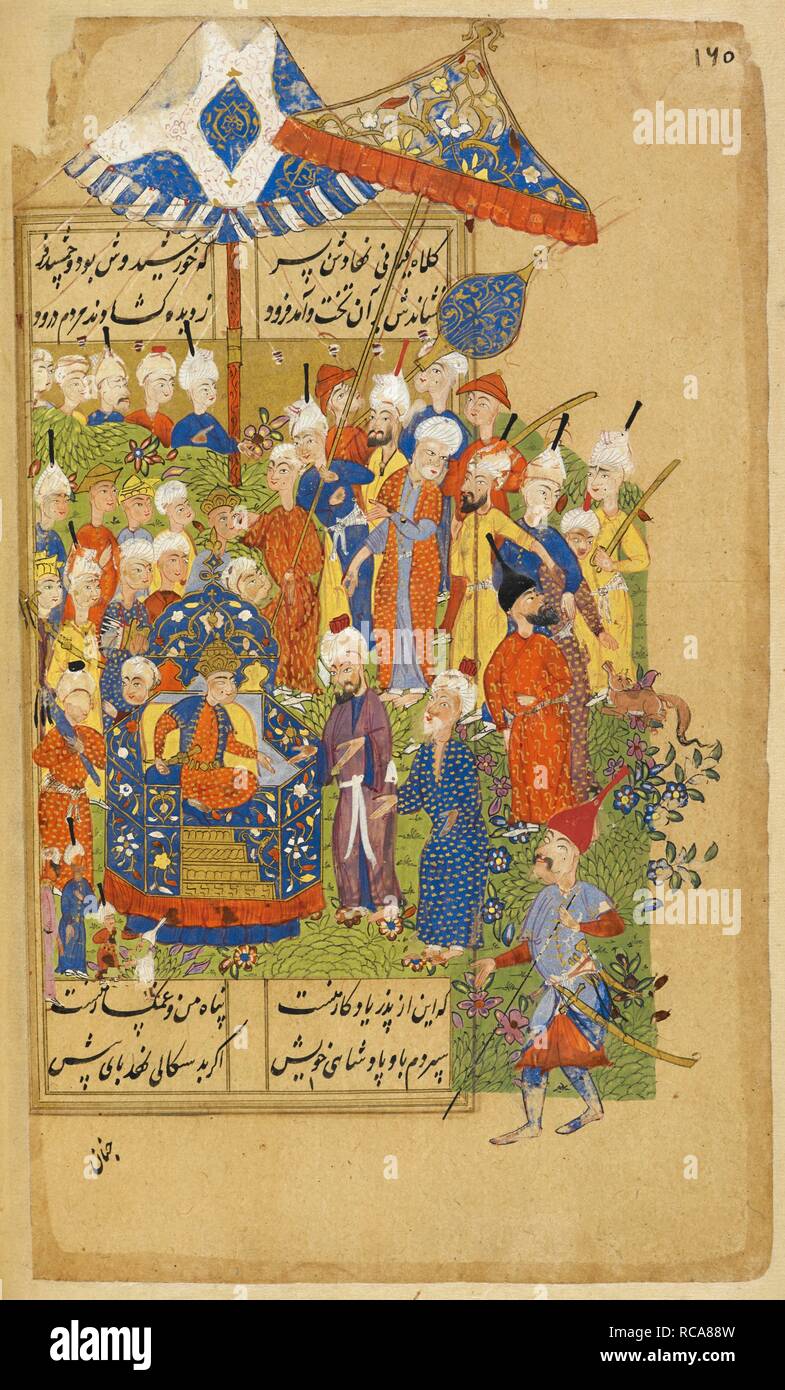 ۱۶۵
کلاه کیانی نهادش بسر که خورشید وش بود و جمشید فر
نشاندش بر آن تخت و آمد فرود ز دیده گشاوند مردم درود
که این از پدر یادگار منست پناه من و غمگسار منست
سپردم باو پادشاهی خویش اگر بد سگالی نهد پای پیش
چنان
alamy
Image ID: RCA88W
www.alamy.com